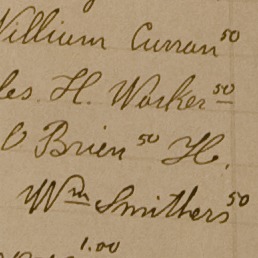 William Curran 50
les. H. Worker 50
O Brien 50 H.
Wm Smithers 50
1.00